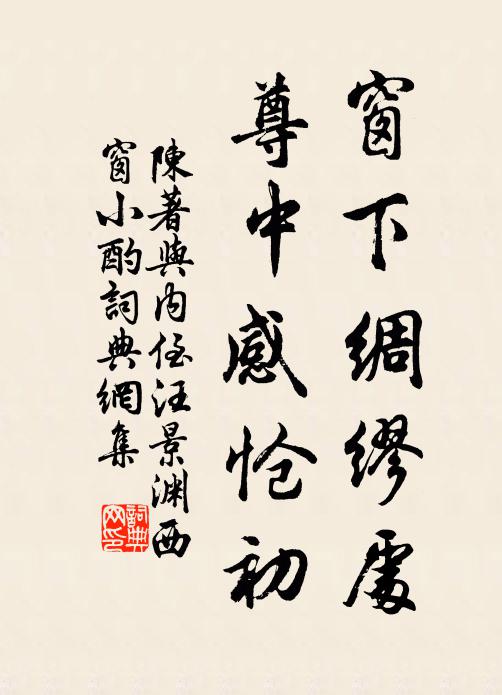 窗下綢繆處
尊中感愴初
陳著與內侄汪景淵西
窗小酌詞典網集
詞典
网印